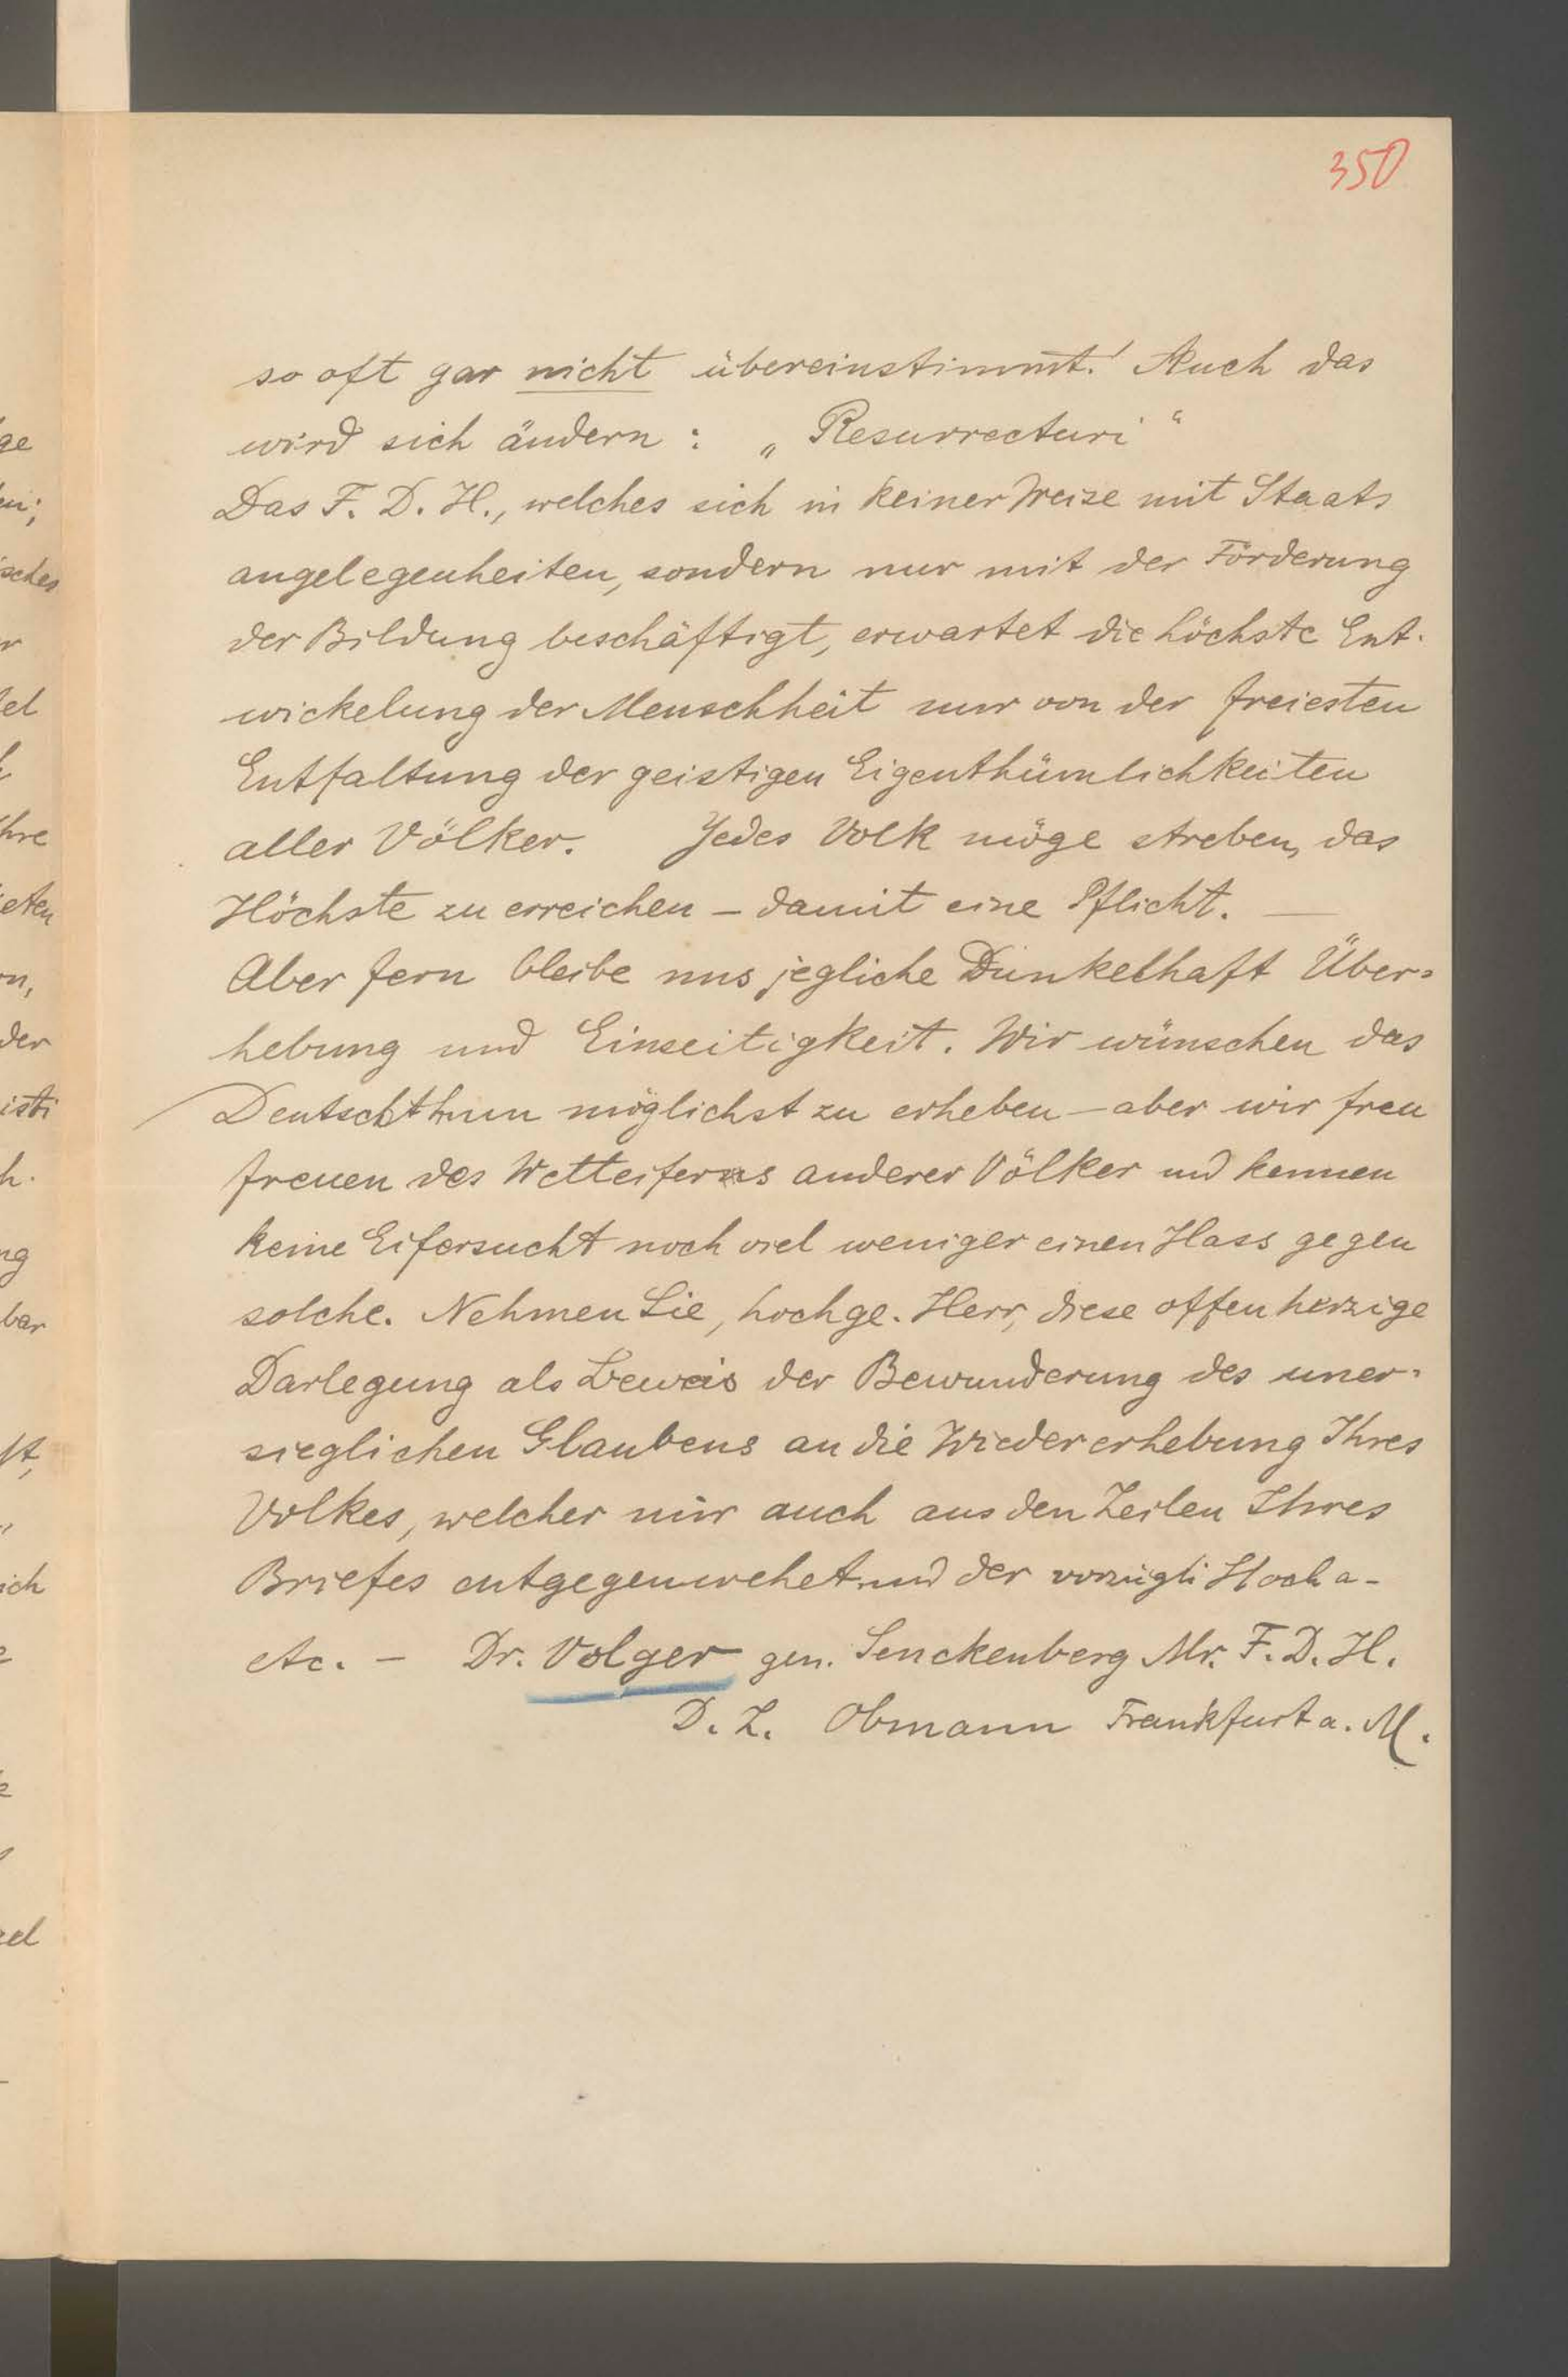 350
so oft gar nicht übereinstimmt! Auch das
wird sich ändern: „Resurrecturi“
Das F. D. H., welches sich in keiner Weise mit Staats
angelegenheiten, sondern nur mit der Förderung
der Bildung beschäftigt, erwartet die höchste Ent-
wickelung der Menschheit nur von der freiesten
Entfaltung der geistigen Eigenthümlichkeiten
aller Völker. Jedes Volk möge streben, das
Höchste zu erreichen – damit eine Pflicht. —
Aber fern bleibe uns jegliche Dünkelhaft Über-
hebung und Einseitigkeit. Wir wünschen das
Deutschthum möglichst zu erheben – aber wir freu
freuen des Wetteiferns anderer Völker und kennen
keine Eifersucht noch viel weniger einen Hass gegen
solche. Nehmen Sie, hochge. Herr, diese offenherzige
Darlegung als Beweis der Bewunderung des uner-
sieglichen Glaubens an die Wiedererhebung Ihres
Volkes, welcher mir auch aus den Zeilen Ihres
Briefes entgegenwehet und der vorzügli Hocha-
etc. – Dr. Volger gen. Senckenberg Mr. F. D. H.
D. Z. Obmann Frankfurt a. M.